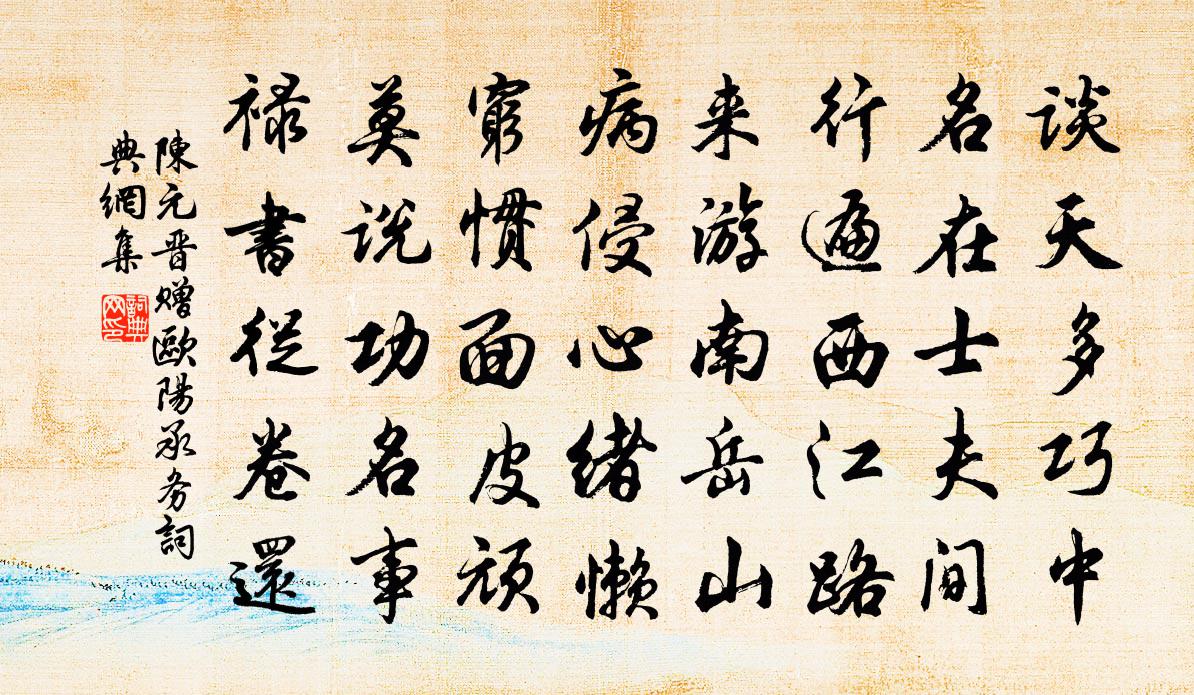 谈天多巧中
名在士夫间
行遍西江路
来游南岳山
病侵心绪懒
穷惯面皮顽
莫说功名事
禄书从卷還
陳元晋赠歐陽承务詞
典網集
詞典网印